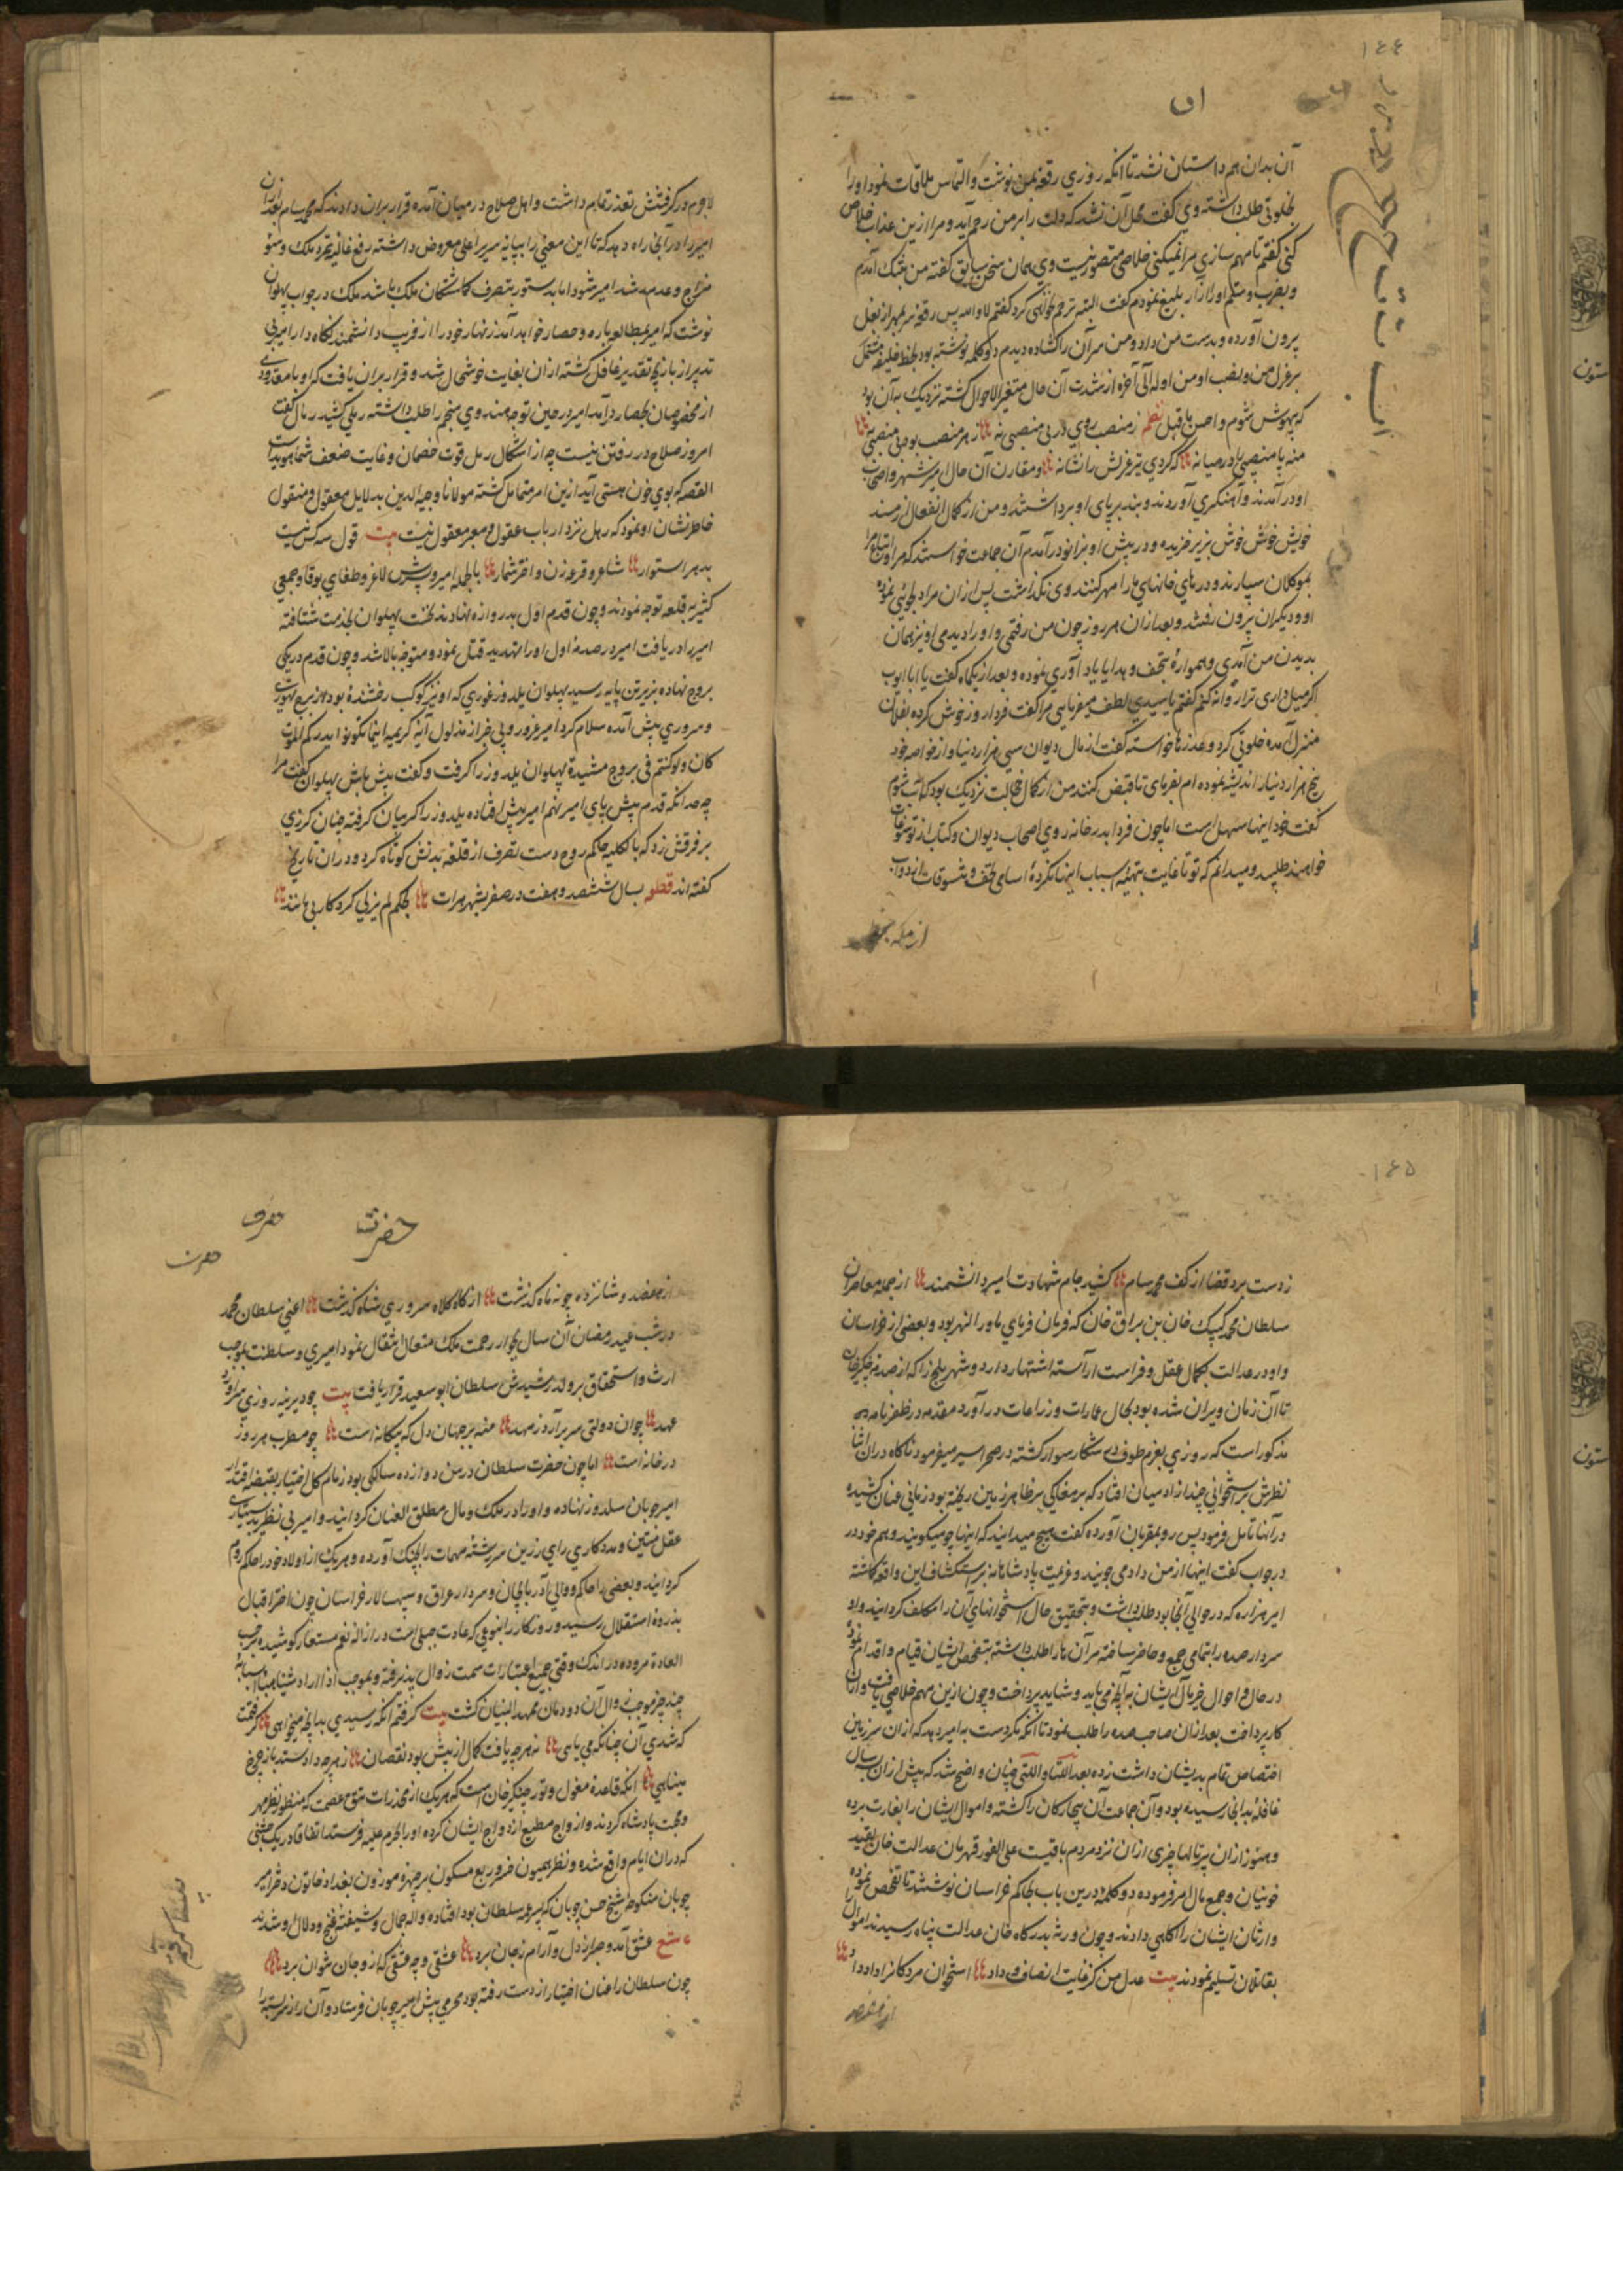 ١٤٤
آن بدان هم داستان نشد تا آنکه روزي رقعه بمن نوشت و التماس ملاقات نمود او را
بخلوتی طلب داشته وي گفت محل آن نشد که دلت را بر من رحم آید و مرا ازین عذاب خلاص
کنی گفتم تا مهم سازي مرا نمیکنی خلاصی متصور نیست وي همان سخن سابق گفته من بتنک آمدم
و بضرب و شکم او را آزار بلیغ نمودم گفت البته ترحم نخواهی کرد گفتم لا والله پس رقعه سر بمهر از بغل
بیرون آورده و بدست من داد و من سر آن را کشاده دیدم دو کلمه نوشته بود بخط خلیفه مشتمل
بر عزل من و نصب او من اوله الی آخره از شدت آن حال متغیر الاحوال کشته نزدیک به آن بود
که بیهوش شوم و احسن ما قیل نظم ز منصب روي در بی منصبی نه ز هر منصب بود بی منصبی به
منه پا منصبی را در میانه که کردي تیر عزلش را نشانه و مقارن آن حال امیر شهر و اصحاب
او در آمدند و آهنگري آوردند و بند بر پای او برداشتند و من از کمال انفعال از مسند
خویش خوش خوش بزیر خزیده و در پیش او بزانو در آمدم آن جماعت خواستند که مرا و اتباع مرا
بموکلان سپارند و درهاي خانهاي ما را مهر کنند وي نکذاشت پس از ان مرا دلجوئی نموده
او و دیکران بیرون رفتند و بعد از ان هر روز چون من رفتمی و او را دیدمی او نیز همان
بدیدن من آمدي و همواره بتحف و هدایا یاد آوري نموده و بعد از یکماه گفت یا ابا ایوب
اگر میل داری ترا روانه کنم گفتم یا سیدي لطف میفرمایی مرا گفت فردا روز خوش کرده بفلان
منزل آمده خلوتی کرد و عذرها خواسته گفت از مال دیوان سی هزار دینار و از خواصه خود
پنج هزار دینار اندیشه نموده ام بفرمای تا قبض کنند من از کمال خجالت نزدیک بود که آب شوم
گفت خود اینها سهل است اما چون فردا بدر خانه روي اصحاب دیوان و کتاب از تو سوغات
خواهند طلبید و میدانم که تو تا غایت بتهیه اسباب این نانکرده اسامی تحف و تنسوقات از دواب
لاجرم در کرفتنش تعذر تمام داشت و اهل صلاح در میان آمده قرار بران دادند که محمد سام
امیر را در آنجا راه دهد که تا این معنی را بپایه سریر اعلی معروض داشته رفع غایله تمرد ملک و سوء
مزاج و عدم رشد امیر شود اما بدستور بتصرف کاشتکان ملک باشد ملک در جواب پهلوان
نوشت که امیر بمطالعه باره و حصار خواهد آمد زنهار خود را از فریب دانشمند نکاه دار امیر بی
تدبیر از بازیچه تقدیر غافل کشته ازان بغایت خوشحال شد و قرار بران یافت که او با معدودی
از مخصوصان بحصار در آمد امیر در حین توجه هندوي منجم را طلب داشته رملی کشید رمال گفت
امروز صلاح در رفتن نیست چه از اشکال رمل قوت خصمان و غایت ضعف شما هویداست
القصه که بوي خون هستی آید ازین امر متمایل کشته مولانا وجیه الدین بدلایل معقول و منقول
خاطر نشان او نمود که رمل نزد ارباب عقول معبر و معقول نیست بیت قول سه کس نیست
بدهر استوار شاعر و قرعه زن و اختر شمار بالجمله امیر و پسرش لاغر و طغاي بوقا و جمعی
کثیر بقلعه توجه نمودند و چون قدم اول بدروازه نهادند نخست پهلوان بخدمت شتافته
امیر را دریافت امیر در صدمه اول او را تهدید قتل نمود و متوجه بالا شد و چون قدم در یکی
بروج نهاده بزیرترین پایه رسید پهلوان یلدوز غوري که او نیز کوکب رخشنده بود از برج تهوري
و سروري پیش آمده سلام کرد امیر غرور و بی خبر از مدلول آیه کریمه اینما تکونوا یدرککم الموت
کان ولو کنتم فی بروج مشیدة پهلوان یلدوز را کرفت و گفت پیش باش پهلوان گفت مرا
چه حد آنکه قدم پیش پاي امیر نهم امیر پیش افتاده یلدوز را کریبان کرفته چنان کرزي
بر فرقش زد که بالکلیه حاکم روح دست تصرف از قلعه بدنش کوتاه کرد و در ان تاریخ
گفته اند قطعه بسال ششصد و هفت در صفر بشهر هرات بحکم لم یزلی کردکار بی مانند
١٤٥
ز دست برد قضا از کف محمد سام کشید جام شهادت امیر دانشمند از جمله معاصران
سلطان محمد کپک خان بن براق خان که فرمان فرماي ماورا النهر بود و بعضی از خراسان
و او در عدالت بکمال عقل و فراست آراسته اشتهار دارد و شهر بلخ را که از صدمه چنکیز خان
تا آن زمان ویران شده بود بحال عمارات و زراعات در آورد مقدمه در ظفرنامه
مذکور است که روزي بعزم طوف و شکار سوار کشته در صحرا سیر میفرمود ناکاه دران اثنا
نظرش بر استخوانی چند از آدمیان افتاد که بر مغاکی بر ظاهر زمین ریخته بود زمانی عنان کشیده
در آنها تامل فرمود پس رو بمقربان آورده گفت هیچ میدانید که اینها چه میکویند و هم خود در
جواب گفت اینها از من داد می جویند و عزیمت پادشاهانه بر استکشاف این واقعه کاشته
امیر هزاره که در حوالی آنجا بود طلب داشت و بتحقیق حال استخوانهاي آن را مکلف کردانید و او
سردار صده را بتمامی جمع و حاضر ساخته سرآن ها را طلب داشته بتفحص ایشان قیام و اقدام نمود
در حال و احوال خیر مآل ایشان به آنچه می باید و شاید پرداخت و چون ازین مهم خلاصی یافت
کار پرداخت بعد ازان صاحب صده را طلب نمود تا آنکه نکر دست به امیر دهد که ازان سرزمین
اختصاص تمام بدیشان داشت زده بعد اللتیا و اللتی چنان واضح شد که پیش ازان بسه سال
قافله بدانجا رسیده بود و آن جماعت آن بیچارکان را کشته و اموال ایشان را بغارت برده
و هنوز ازان پرتالها چیزی ازان نزد مردم باقیست علی الفور قهرمان عدالت خان بقید
خونیان و جمع مال امر فرموده دو کلمه درین باب بحاکم خراسان نوشتند تا تفحص نموده
وارثان ایشان را آکاهی دادند و چون ورثه بدرکاه خان عدالت پناه رسیدند اموال را
بقاتلان تسلیم نمودند بیت عدل من کز غایت انصاف و داد استخوان مردکان را داد داد
حضرت
حضرت
حضرت
ز هفصد و شانزده چو نه ماه کذشت از کاه کلاه سروري شاه کذشت اعنی سلطان محمد
در شب عید رمضان آن سال بجوار رحمت ملک متعال انتقال نمود امیري و سلطنت بموجب
ارث و استحقاق بر ولد رشیدش سلطان ابوسعید قرار یافت بیت چو دیرینه روزي سرآورد
عهد جوان دولتی سر برآرد ز مهد منه بر جهان دل که بیکانه است چو مطرب هر روز
در خانه است اما چون حضرت سلطان در سن دوازده سالکی بود زمام کل اختیار بقبضه اقتدار
امیر چوبان سلدوز نهاده و او را در ملک و مال مطلق العنان کردانید و امیر بی نظیر بدستیاری
عقل متین و مددکاري راي رزین سررشته مهمات را بچنک آورده و هر یک از اولاد خود را حاکم روم
کردانید و بعضی را حاکم و والی آذربایجان و سردار عراق و سپهسالار خراسان چون اختر اقبال
بذروه استقلال رسید و روزکار را بنوعی که عادت جبلی است در ازاله نعم مستعار کوشیده بحسب
العاده مروده در اندک وقتی جمیع اعتبارات سمت زوال پذیرفته و بموجب اذا اراد شیئا هیأ اسبابه
چند چیز موجب زوال آن دودمان ممهد البنیان کشت بیت کرفتم آنکه رسیدي بدانچه میخواهی کرفتمت
که شدي آن چنانکه می یابی نه هرچه یافت کمال از پیش بود نقصان نه هرچه داد ستد باز چرخ
مینایی آنکه قاعده مغول و توره چنکیز خان است که هر یک از مخدرات تتق عصمت که منظور نظر مهر
و محبت پادشاه کردند و ازواج مطیع از دواج ایشان کرده او را بحرم علیه فرستد اتفاقا در یک جشنی
که دران ایام واقع شده و نظر همیون خرور ربع مسکون بر چهره موزون بغداد خاتون دختر امیر
چوبان منکوحه شیخ حسن چوبان که پسر عمه سلطان بود افتاده واله جمال و شیفته غنج و دلال او شدند
عشق آمد و صبر از دل و آرام ز جان برد عشقی و چه عشقی که ازو جان نتوان برد
چون سلطان را عنان اختیار از دست رفته بود محرمی پیش امیر چوبان فرستاد و آن راز سربسته را
ستون
ستون